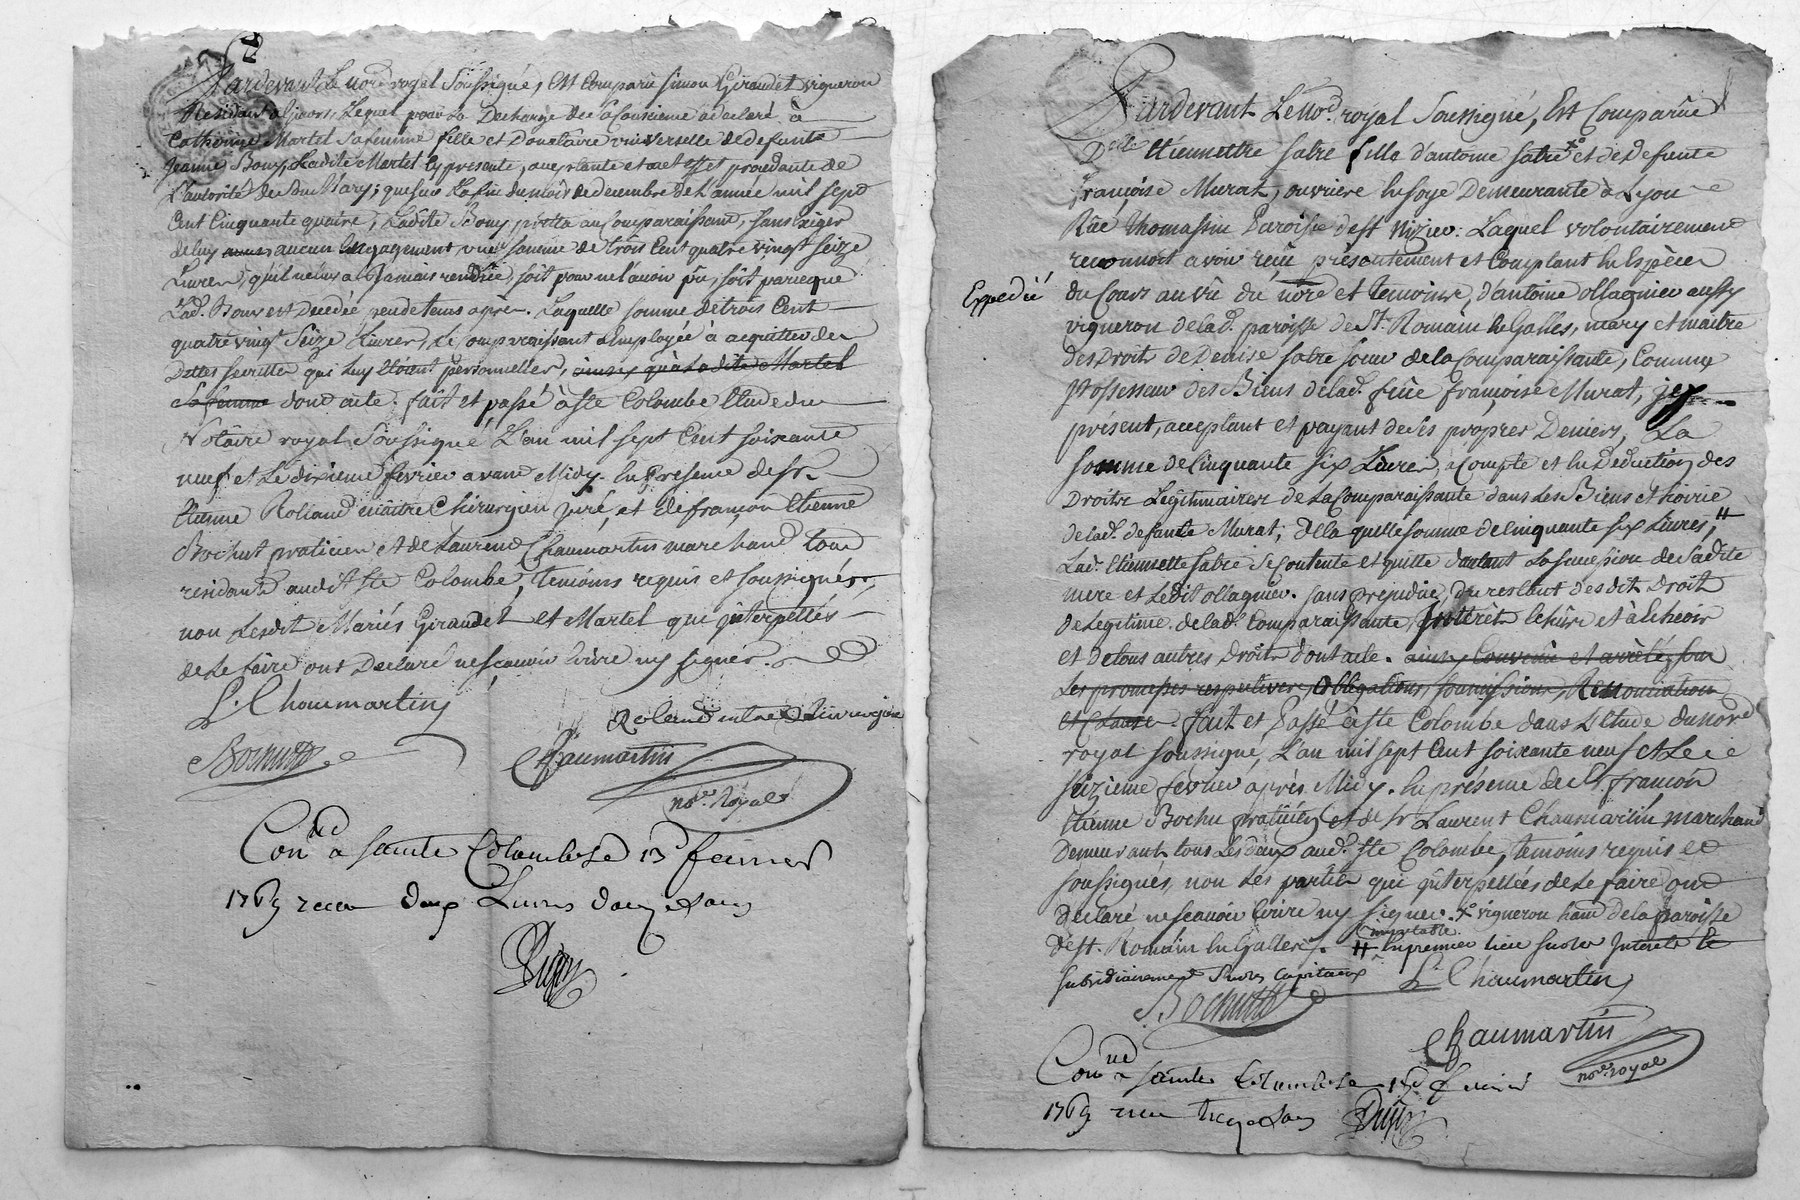 Pardevant Le nore royal Soussigné, Est Comparu Simon Giraudet vigneron
Residant a Givors, Lequel pour La Decharge de sa Consience a declaré à
Catherine Martel Sa femme fille et Donataire universelle de defunte
Jeanne Bouy, Ladite Martel Cy presente, aceptante et acet effet procedante de
L'autorité de Son Mary; que sur La fin du mois de decembre de L'année mil sept
Cent Cinquante quatre, Ladite Bouy prêta au Comparaissant, sans Exiger
de luy aucun Engagement, une somme de trois Cent quatre vingt seize
Livres, qu'il ne luy a Jamais rendüe, soit pour ne l'avoir pû, soit parceque
Lad. Bouy est Decedée peu de tems après. Laquelle somme de trois Cent
quatre vingt Seize Livres, Le Comparaissant a Employée à acquitter des
Dettes qui luy étoient personnelles, ainsy qu'à Ladite Martel
Sa femme dont acte. fait et passé à Ste Colombe Etude du
Notaire royal Soussigné L'an mil sept Cent soixante
neuf et Le dixieme fevrier avant Midy. En Presence de sr.
Etienne Rolland maitre Chirurgien juré, et de françois Etienne
Bochut praticien et de Laurent Chaumartin marchand tous
residants audit Ste Colombe, temoins requis et soussignés,
non Lesdit Mariés Giraudet et Martel qui Interpellés
de Le faire ont Declaré ne scavoir Ecrire ny signer.
L. Chaumartin
Roland mtre Chirurgien
Bochutt
Chaumartin
nore. Royal
Conlé a sainte Colombe Le 13 fevrier
1769 receu deux Livres douze sous
Expedié
Pardevant Le Nore. royal Soussigné, Est Comparüe
Dlle Etiennette Sabre fille d'antoine Sabre et de Defunte
françoise Murat, ouvriere En soye Demeurante à Lyon
Rüe Thomassin Paroisse de st Nizier. Laquel volontairement
reconnoit avoir reçu présentement et Comptant En Espèces
du Cours au vû du nore et temoins, d'antoine ollagnier aussy
vigneron de lad. paroisse de St. Romain En Galles, mary et maitre
des Droits de Denise Sabre soeur de la Comparaissante, Comme
Possesseur des Biens de lad. feüe françoise Murat, icy
présent, acceptant et payant de ses propres Deniers, La
somme de Cinquante six Livres, a Compte et En Deduction des
Droits Légitimaires de La Comparaissante dans Les Biens et hoirie
de lad. defunte Murat; de la quelle somme de Cinquante six Livres, #
Lad. Etiennette Sabre Se Contente et quitte d'autant La succession de Sadite
mere et Ledit ollagnier. sans prejudice du restant desdit Droit
de Légitime de lad. Comparaissante, Intérêt Echûs et à Echeoir
et de tous autres Droits dont acte. ainsy Convenu et arrêté sous
Les promesses respectives, Obligations, soumissions, Renonciation
et Clause. fait et Passé à Ste Colombe dans L'Etude du nore
royal soussigné, L'an mil sept Cent soixante neuf et Le
seizieme fevrier après Midy. En présence de Sr. françois
Etienne Bochu praticien et de sr Laurent Chaumartin marchand
Demeurants tous Les deux aud. Ste Colombe, temoins requis et
soussignés, non Les parties qui Interpellées de Le faire ont
Declaré ne scavoir Ecrire ny signer. x vigneron hant de la paroisse
de St. Romain En Galles. # imputable En premier lieu sur les Interets et
subsidiairement sur les Capitaux
L. Chaumartin
Bochutt
Chaumartin
nore. royal
Conlé a sainte Colombe Le fevrier
1769 receu treize sous